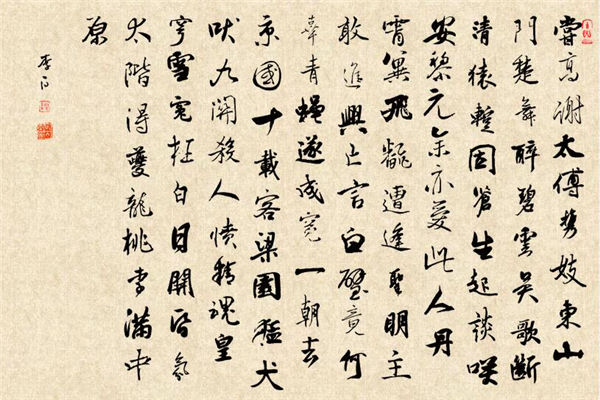 嘗高謝太傅携妓東山
門楚舞醉碧雲吴歌斷
清猿暫因蒼生起談咲
安黎元余亦愛此人丹
霄冀飛翻遭逢聖明主
敢進興亡言白璧竟何
辜青蠅遂成冤一朝去
京國十載客梁園猛犬
吠九關殺人憤精魂皇
穹雪冤枉白日開昏氛
太階得夔龍桃李滿中
原
李白